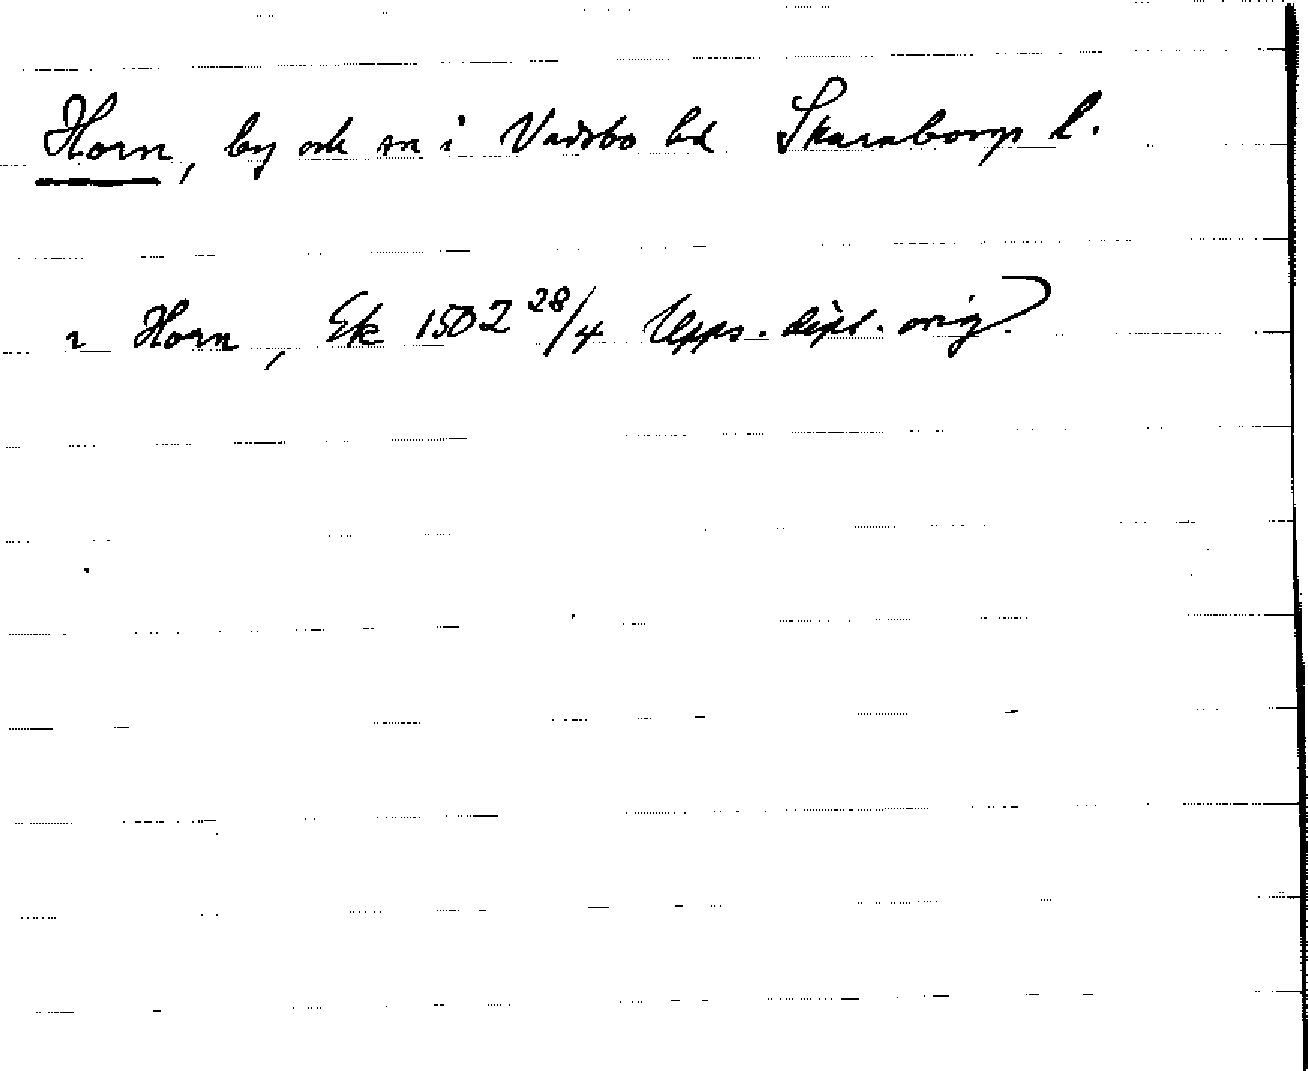 Horn, by och sn i Vadsbo hd Skaraborgs l.
i Horn, Ek 1502 28/4 Upps. dipl. orig.